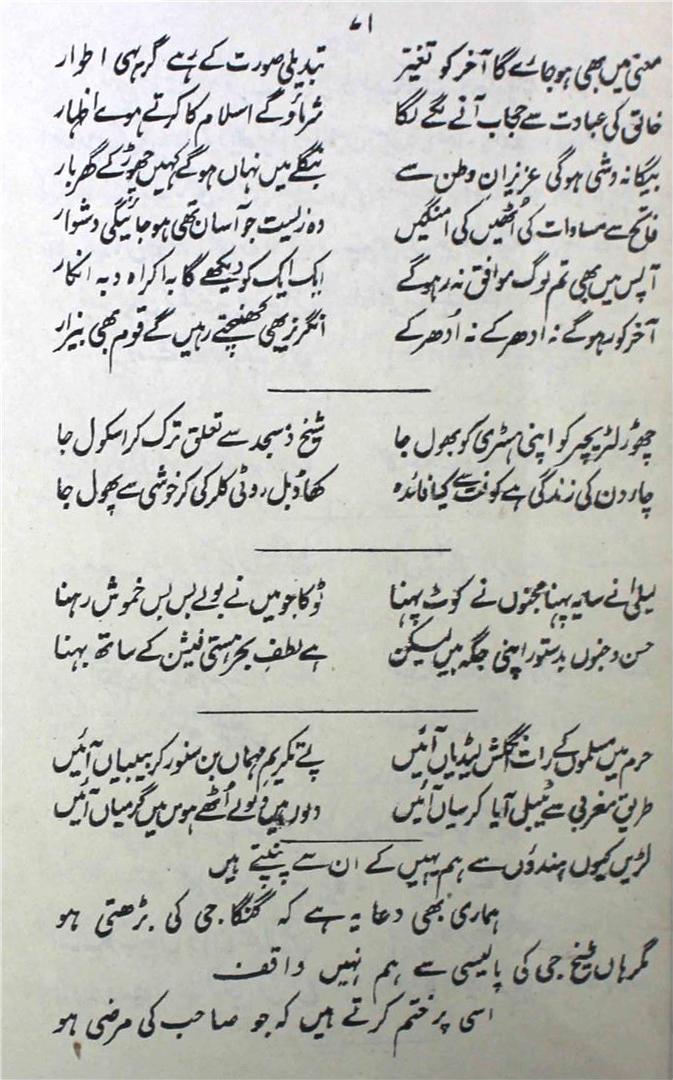 ۷۱
معنی میں بھی ہو جائے گا آخر کو تغیّر تبدیلیِ صورت کے رہے گر یہی اطوار
خالق کی عبادت سے حجاب آنے لگے گا شرماؤ گے اسلام کا کرتے ہوے اظہار
بیگانہ وشی ہوگی عزیزانِ وطن سے بنگلے میں نہاں ہوگے کہیں چھوڑ کے گھر بار
فاتح سے مساوات کی اُٹھیں گی امنگیں وہ زیست جو آسان تھی ہو جائیگی دشوار
آپس میں بھی تم لوگ موافق نہ رہو گے ایک ایک کو دیکھے گا بہ اکراہ و بہ انکار
آخر کو رہو گے نہ ادھر کے نہ اُدھر کے انگریز بھی کھنچتے رہیں گے قوم بھی بیزار
چھوڑ لٹریچر کو اپنی ہسٹری کو بھول جا شیخ و مسجد سے تعلق ترک کر اسکول جا
چار دن کی زندگی ہے کوفت سے کیا فائدہ کھا ڈبل روٹی کلرکی کر خوشی سے پھول جا
لیلیٰ نے سایہ پہنا مجنوں نے کوٹ پہنا ٹوکا جو میں نے بولے بس بس خموش رہنا
حسن و جنوں بدستور اپنی جگہ ہیں لیکن ہے لطف بحرِ ہستی فیشن کے ساتھ بہنا
حرم میں مسلموں کے رات انگلش لیڈیاں آئیں پئے تکریمِ مہماں بن سنور کر بیبیاں آئیں
طریقِ مغربی سے ٹیبل آیا کرسیاں آئیں دلوں میں ولولے اُٹھے ہوس میں گرمیاں آئیں
لڑیں کیوں ہندوؤں سے ہم یہیں کے ان سے پنپتے ہیں
ہماری بھی دعا یہ ہے کہ گنگا جی کی بڑھتی ہو
مگر ہاں شیخ جی کی پالیسی سے ہم نہیں واقف
اسی پر ختم کرتے ہیں کہ جو صاحب کی مرضی ہو